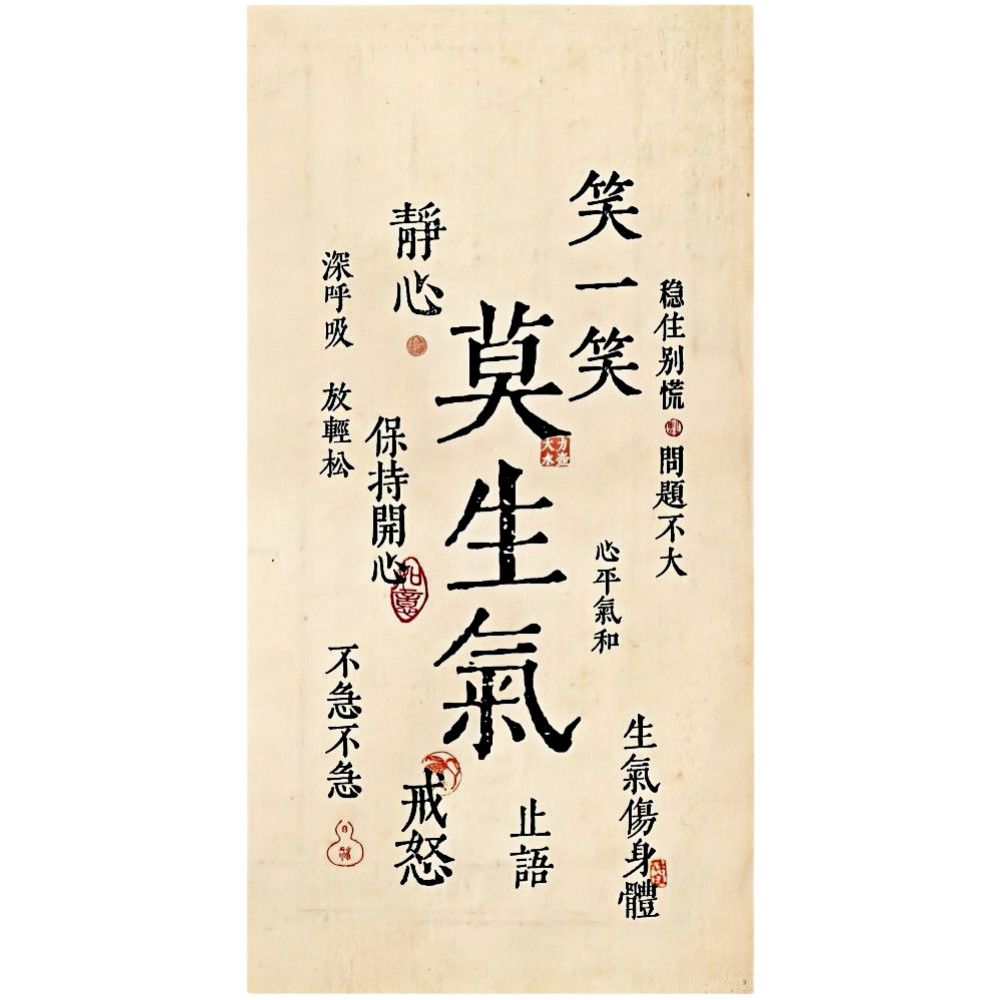 稳住别慌 問題不大
笑一笑
生氣傷身體
心平氣和
莫生氣
止語
靜心
戒怒
保持開心
如意
深呼吸 放輕松
不急不急